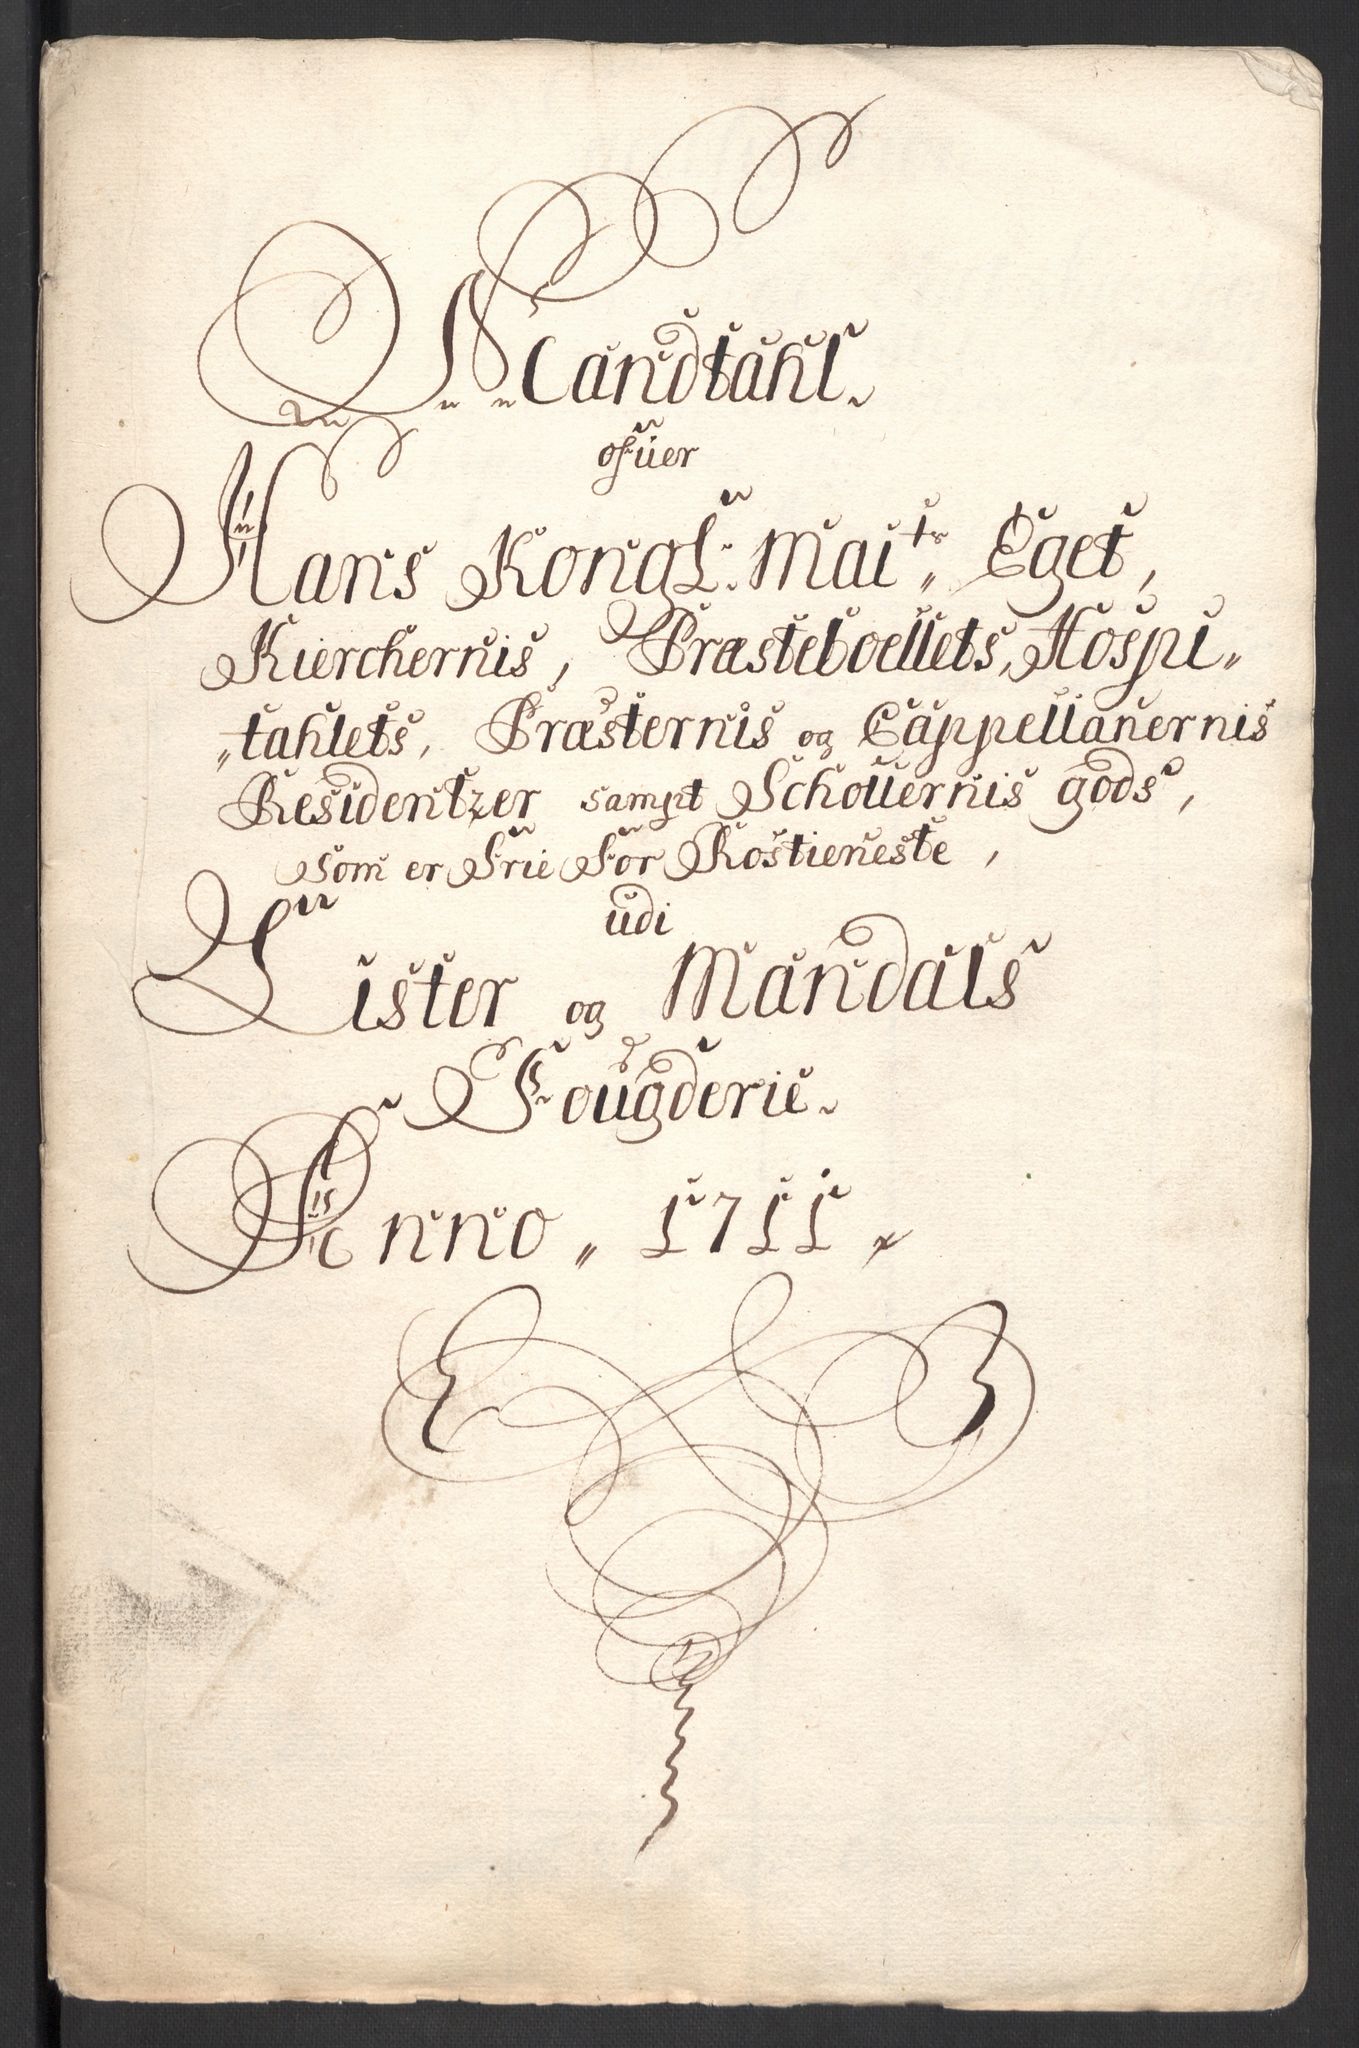 Mandtahl.
ofuer
Hans Kongl: Maits. Eget,
Kierchernis, Præsteboellets, Hospi„
„tahlets, Præsternis og Cappellanernis
Residentzer sampt Schollernis gods,
som er Frie For Rostieneste,
udi
Lister og Mandals
Fougderie.
Anno „ 1711 „